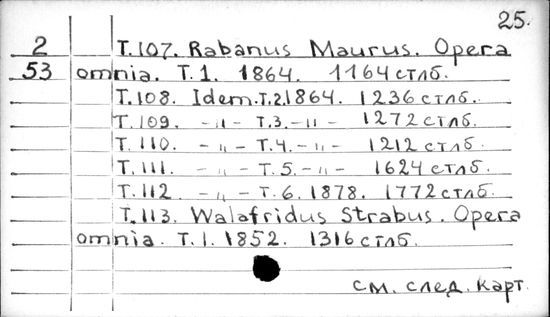 25.
2 Т.107. Rabanus Maurus. Opera
53 omnia. Т.1. 1864. 1164 стлб.
Т.108. Idem. Т.2. 1864. 1236 стлб.
Т.109. -〃- Т.3. -〃- 1272 стлб.
Т.110. -〃- Т.4. -〃- 1212 стлб.
Т.111. -〃- Т.5. -〃- 1624 стлб.
Т.112 -〃- Т.6. 1878. 1772 стлб.
Т.113. Walafridus Strabus. Opera
omnia. Т.1. 1852. 1316 стлб.
см. след. карт.